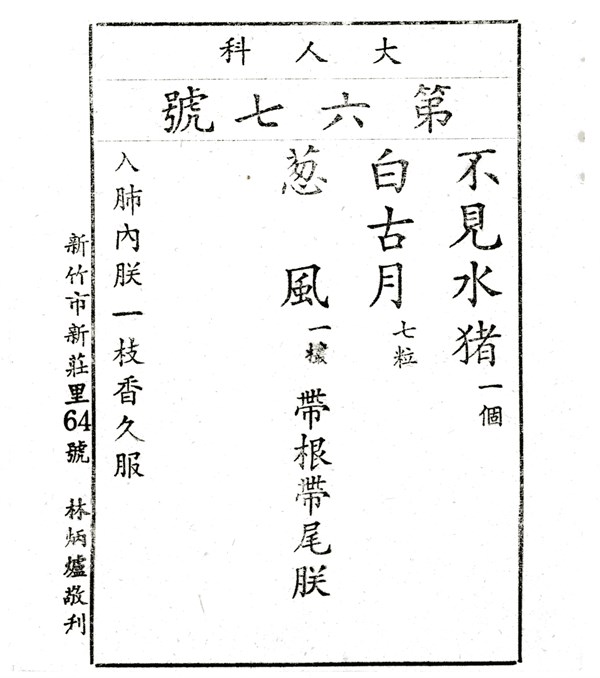 大人科
第六七號
不見水猪一個
白古月七粒
葱風一欉帶根帶尾朕
入肺內朕一枝香久服
新竹市新莊里64號 林炳爐敬利